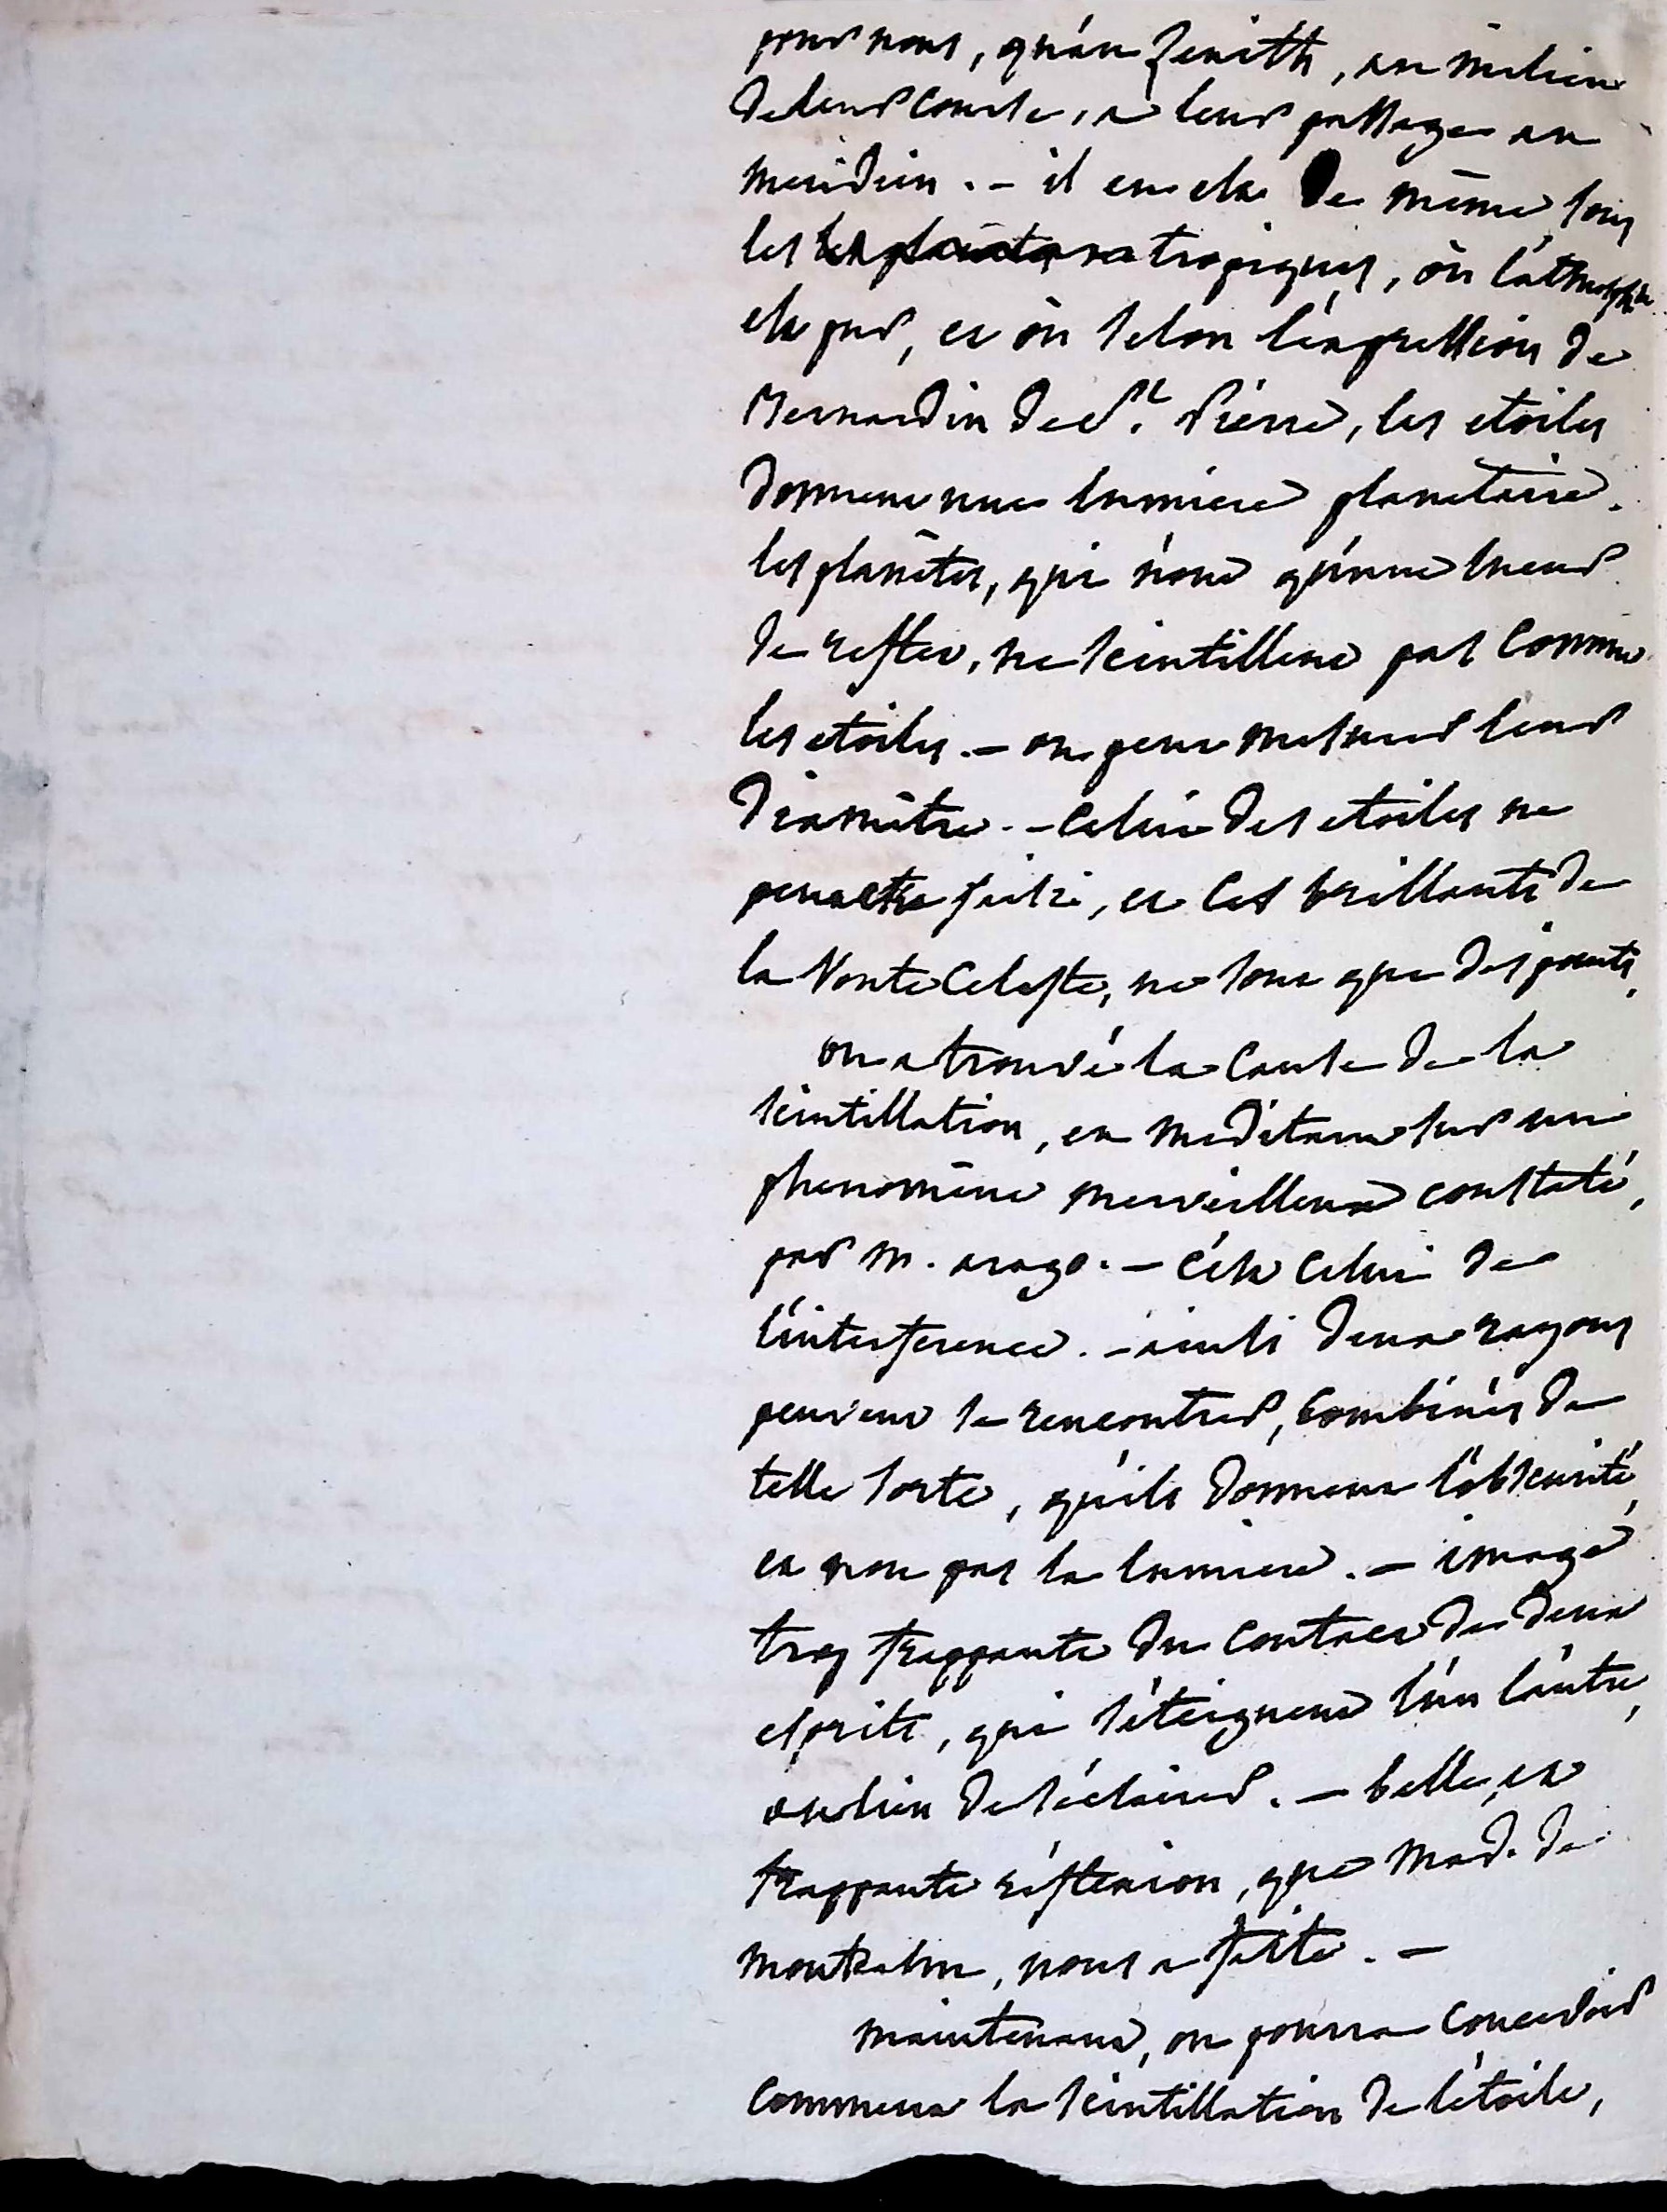 pour nous, qu'au Zenith, au milieu
de leur course, a leur passage au
meridien. - il en est de même sous
les tropiques, où l'atmosphère
est pur, et où selon l'expression de
Bernardin de St. Pierre, les etoiles
donnent une lumiere planetaire.
les planêtes, qui n'ont qu'une lueur
de reflet, ne scintillent pas comme
les etoiles. - on peut mesurer leur
diamêtre. - celui des etoiles ne
peut etre saisi, et ces brillants de
la Voute Celeste, ne sont que des points.
on a trouvé la cause de la
scintillation, en meditant sur un
phenomêne merveilleux constaté,
par m. arago. - c'est celui de
l'interference. - ainsi deux rayons
peuvent se rencontrer, combinés de
telle sorte, qu'ils donnent l'obscurité,
et non pas la lumiere. - image
trop frappante du contact de deux
esprits, qui s'éteignent l'un l'autre,
au lieu de s'éclairer. - belle, et
frappante réflexion, que Mad. de
montcalm, nous a faite. -
maintenant, on pourra concevoir
comment la scintillation de l'étoile,